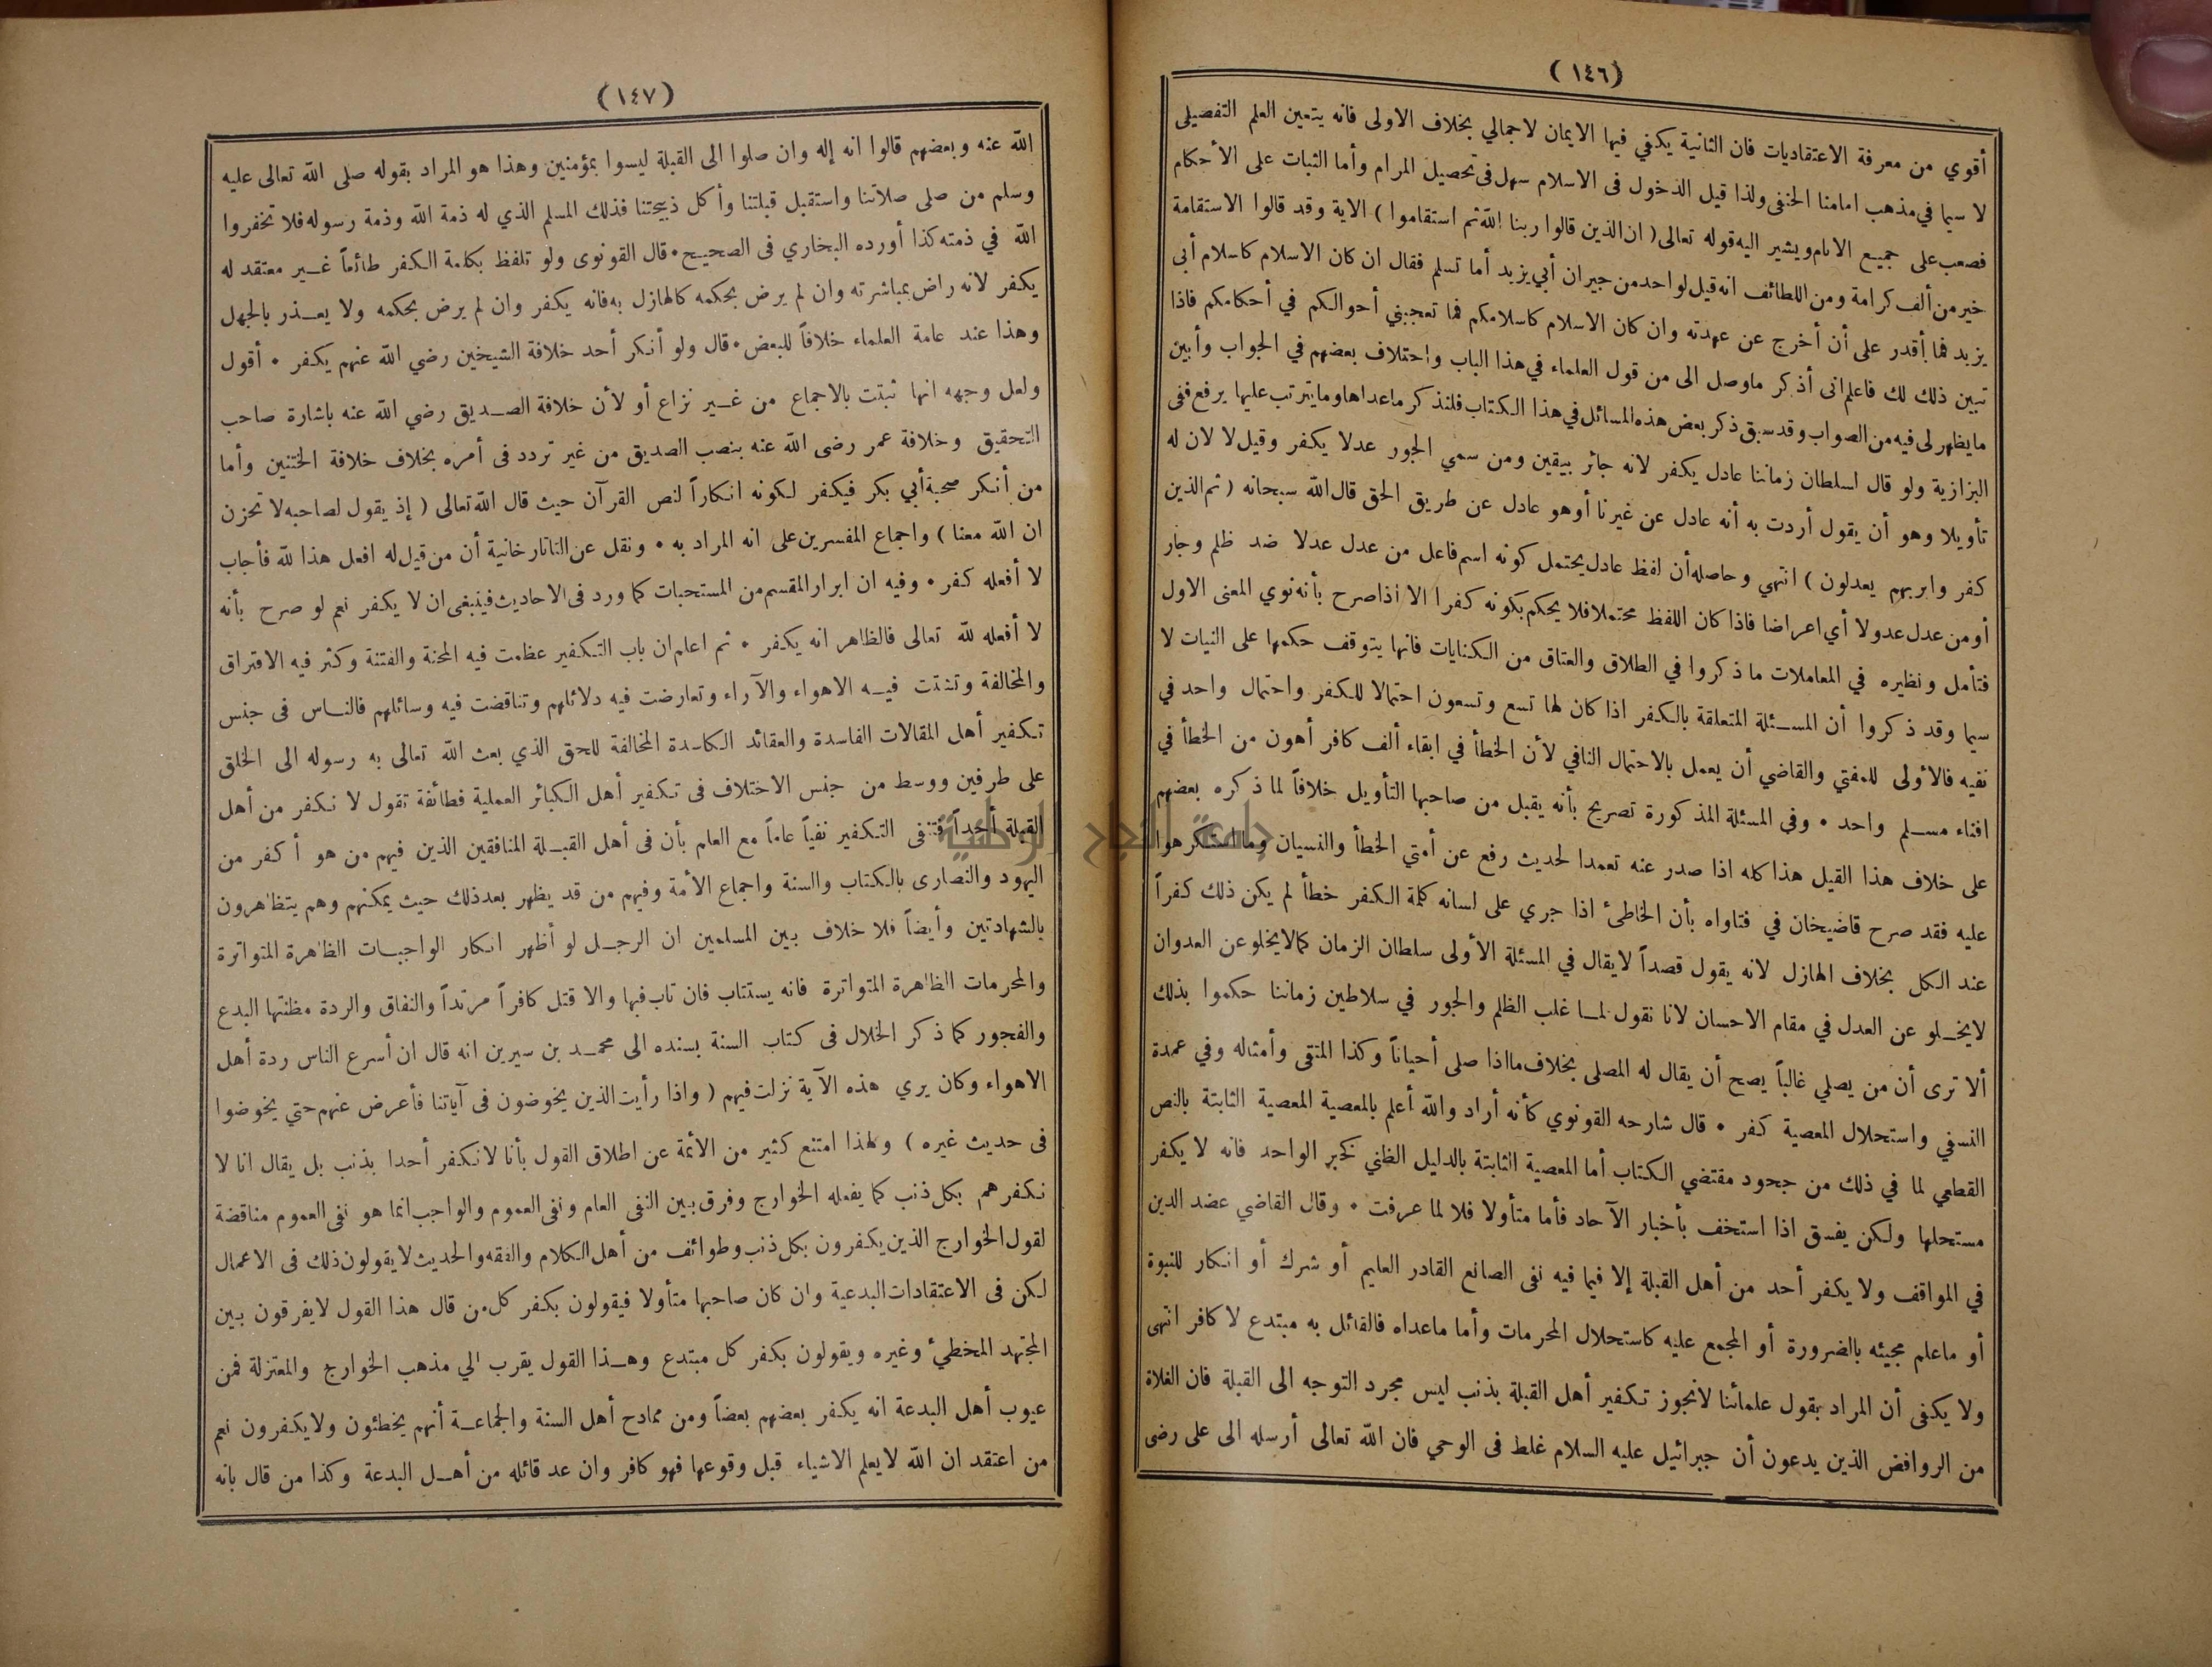 (١٤٦)
أقوي من معرفة الاعتقاديات فان الثانية يكفي فيها الايمان لاجمالي بخلاف الاولى فانه يتعين العلم التفصيلى
لا سيما في مذهب امامنا الحنفى ولذا قيل الدخول فى الاسلام سهل فى تحصيل المرام وأما الثبات على الأحكام
فصعب على جميع الانام ويشير اليه قوله تعالى ( ان الذين قالوا ربنا الله ثم استقاموا ) الاية وقد قالوا الاستقامة
خير من ألف كرامة ومن اللطائف انه قيل لواحد من جيران أبي يزيد أما تسلم فقال ان كان الاسلام كاسلام أبى
يزيد فما أقدر على أن أخرج عن عهدته وان كان الاسلام كاسلامكم فما تعجبني أحوالكم في أحكامكم فاذا
تبين ذلك لك فاعلم انى أذكر ماوصل الى من قول العلماء في هذا الباب واختلاف بعضهم في الجواب وأبين
مايظهر لى فيه من الصواب وقد سبق ذكر بعض هذه المسائل في هذا الكتاب فلنذكر ماعداها وما يترتب عليها يرفع ففى
البزازية ولو قال لسلطان زماننا عادل يكفر لانه جائر بيقين ومن سمي الجور عدلا يكفر وقيل لا لان له
تأويلا وهو أن يقول أردت به أنه عادل عن غيرنا أو هو عادل عن طريق الحق قال الله سبحانه ( ثم الذين
كفروا بربهم يعدلون ) انتهي وحاصله أن لفظ عادل يحتمل كونه اسم فاعل من عدل عدلا ضد ظلم وجار
أو من عدل عدولا أي اعراضا فاذا كان اللفظ محتملا فلا يحكم بكونه كفرا الا اذا صرح بأنه نوي المعنى الاول
فتأمل ونظيره في المعاملات ما ذكروا في الطلاق والعتاق من الكنايات فانها يتوقف حكمها على النيات لا
سيما وقد ذكروا أن المسئلة المتعلقة بالكفر اذا كان لها تسع وتسعون احتمالا للكفر واحتمال واحد في
نفيه فالأولى للمفتي والقاضي أن يعمل بالاحتمال النافي لأن الخطأ في ابقاء ألف كافر أهون من الخطأ في
افناء مسلم واحد • وفي المسئلة المذكورة تصريح بأنه يقبل من صاحبها التأويل خلافاً لما ذكره بعضهم
على خلاف هذا القيل هذا كله اذا صدر عنه تعمدا لحديث رفع عن أمتي الخطأ والنسيان وما استكرهوا
عليه فقد صرح قاضيخان في فتاواه بأن الخاطئ اذا جري على لسانه كلمة الكفر خطأ لم يكن ذلك كفراً
عند الكل بخلاف الهازل لانه يقول قصداً لايقال في المسئلة الأولى سلطان الزمان كمالا يخلو عن العدوان
لايخلو عن العدل في مقام الاحسان لانا نقول لما غلب الظلم والجور في سلاطين زماننا حكموا بذلك
ألا ترى أن من يصلي غالباً يصح أن يقال له المصلى بخلاف مااذا صلى أحياناً وكذا المتقى وأمثاله وفي عمدة
النسفي واستحلال المعصية كفر • قال شارحه القونوي كأنه أراد والله أعلم بالمعصية المعصية الثابتة بالنص
القطعي لما في ذلك من جحود مقتضي الكتاب أما المعصية الثابتة بالدليل الظني كخبر الواحد فانه لا يكفر
مستحلها ولكن يفسق اذا استخف بأخبار الآحاد فأما متأولا فلا لما عرفت • وقال القاضي عضد الدين
في المواقف ولا يكفر أحد من أهل القبلة إلا فيما فيه نفى الصانع القادر العليم أو شرك أو انكار للنبوة
أو ماعلم مجيئه بالضرورة أو المجمع عليه كاستحلال المحرمات وأما ماعداه فالقائل به مبتدع لا كافر انتهى
ولا يكفى أن المراد بقول علمائنا لانجوز تكفير أهل القبلة بذنب ليس مجرد التوجه الى القبلة فان الغلاة
من الروافض الذين يدعون أن جبرائيل عليه السلام غلط فى الوحي فان الله تعالى أرسله الى على رضى
(١٤٧)
الله عنه وبعضهم قالوا انه إله وان صلوا الى القبلة ليسوا بمؤمنين وهذا هو المراد بقوله صلى الله تعالى عليه
وسلم من صلى صلاتنا واستقبل قبلتنا وأكل ذبيحتنا فذلك المسلم الذي له ذمة الله وذمة رسوله فلا تخفروا
الله في ذمته كذا أورده البخاري فى الصحيح • قال القونوى ولو تلفظ بكلمة الكفر طائعاً غير معتقد له
يكفر لانه راض بمباشرته وان لم يرض بحكمه كالهازل به فانه يكفر وان لم يرض بحكمه ولا يعذر بالجهل
وهذا عند عامة العلماء خلافاً للبعض • قال ولو أنكر أحد خلافة الشيخين رضي الله عنهم يكفر • أقول
ولعل وجهه انها ثبتت بالاجماع من غير نزاع أو لأن خلافة الصديق رضي الله عنه باشارة صاحب
التحقيق وخلافة عمر رضى الله عنه بنصب الصديق من غير تردد فى أمره بخلاف خلافة الختنين وأما
من أنكر صحبة أبي بكر فيكفر لكونه انكاراً لنص القرآن حيث قال الله تعالى ( إذ يقول لصاحبه لا تحزن
ان الله معنا ) واجماع المفسرين على انه المراد به • ونقل عن التاتارخانية أن من قيل له افعل هذا لله فأجاب
لا أفعله كفر • وفيه ان ابرار المقسم من المستحبات كما ورد فى الاحاديث فينبغى ان لا يكفر نعم لو صرح بأنه
لا أفعله لله تعالى فالظاهر انه يكفر • ثم اعلم ان باب التكفير عظمت فيه المحنة والفتنة وكثر فيه الافتراق
والمخالفة وتشتت فيه الاهواء والآراء وتعارضت فيه دلائلهم وتناقضت فيه وسائلهم فالناس فى جنس
تكفير أهل المقالات الفاسدة والعقائد الكاسدة المخالفة للحق الذي بعث الله تعالى به رسوله الى الخلق
على طرفين ووسط من جنس الاختلاف فى تكفير أهل الكبائر العملية فطائفة تقول لا نكفر من أهل
القبلة أحداً فتنفى التكفير نفياً عاماً مع العلم بأن فى أهل القبلة المنافقين الذين فيهم من هو أكفر من
اليهود والنصارى بالكتاب والسنة واجماع الأمة وفيهم من قد يظهر بعد ذلك حيث يمكنهم وهم يتظاهرون
بالشهادتين وأيضاً فلا خلاف بين المسلمين ان الرجل لو أظهر انكار الواجبات الظاهرة المتواترة
والمحرمات الظاهرة المتواترة فانه يستتاب فان تاب فبها والا قتل كافراً مرتداً والنفاق والردة مظنتها البدع
والفجور كما ذكر الخلال فى كتاب السنة بسنده الى محمد بن سيرين انه قال ان أسرع الناس ردة أهل
الاهواء وكان يري هذه الآية نزلت فيهم ( واذا رأيت الذين يخوضون فى آياتنا فأعرض عنهم حتي يخوضوا
فى حديث غيره ) ولهذا امتنع كثير من الأئمة عن اطلاق القول بأنا لا نكفر أحدا بذنب بل يقال انا لا
نكفرهم بكل ذنب كما يفعله الخوارج وفرق بين النفى العام ونفى العموم والواجب انما هو نفى العموم مناقضة
لقول الخوارج الذين يكفرون بكل ذنب وطوائف من أهل الكلام والفقه والحديث لا يقولون ذلك فى الاعمال
لكن فى الاعتقادات البدعية وان كان صاحبها متأولا فيقولون بكفر كل من قال هذا القول لايفرقون بين
المجتهد المخطئ وغيره ويقولون بكفر كل مبتدع وهذا القول يقرب الي مذهب الخوارج والمعتزلة فمن
عيوب أهل البدعة انه يكفر بعضهم بعضاً ومن ممادح أهل السنة والجماعة أنهم يخطئون ولا يكفرون نعم
من اعتقد ان الله لايعلم الاشياء قبل وقوعها فهو كافر وان عد قائله من أهل البدعة وكذا من قال بانه
جامعة النجاح الوطنية